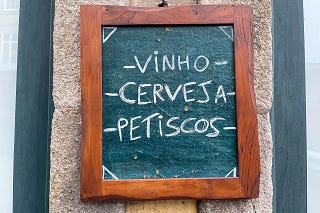 -VINHO-
-CERVEJA-
-PETISCOS-